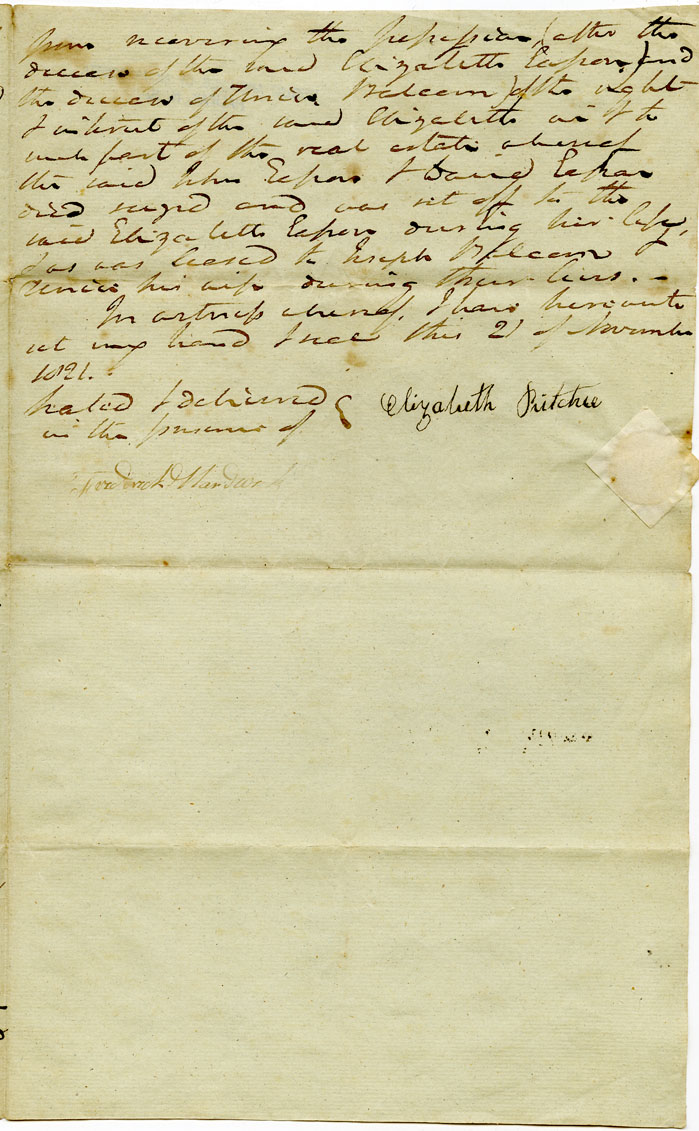 from recovering the possession, (after the
decease of the said Elizabeth Eapon) and
the decease of Unice Balcom) of the right
& interest of the said Elizabeth in & to
such part of the real estate whereof
the said John Eapon & David Eapon
died seized and was set off to the
said Elizabeth Eapon during her life,
& as was leased to Joseph Balcom &
Unice his wife during their lives. —
In witness whereof, I have hereunto
set my hand & seal this 21 of November
1821.
Sealed & delivered
in the presence of
Elizabeth Ritchie
Frederick